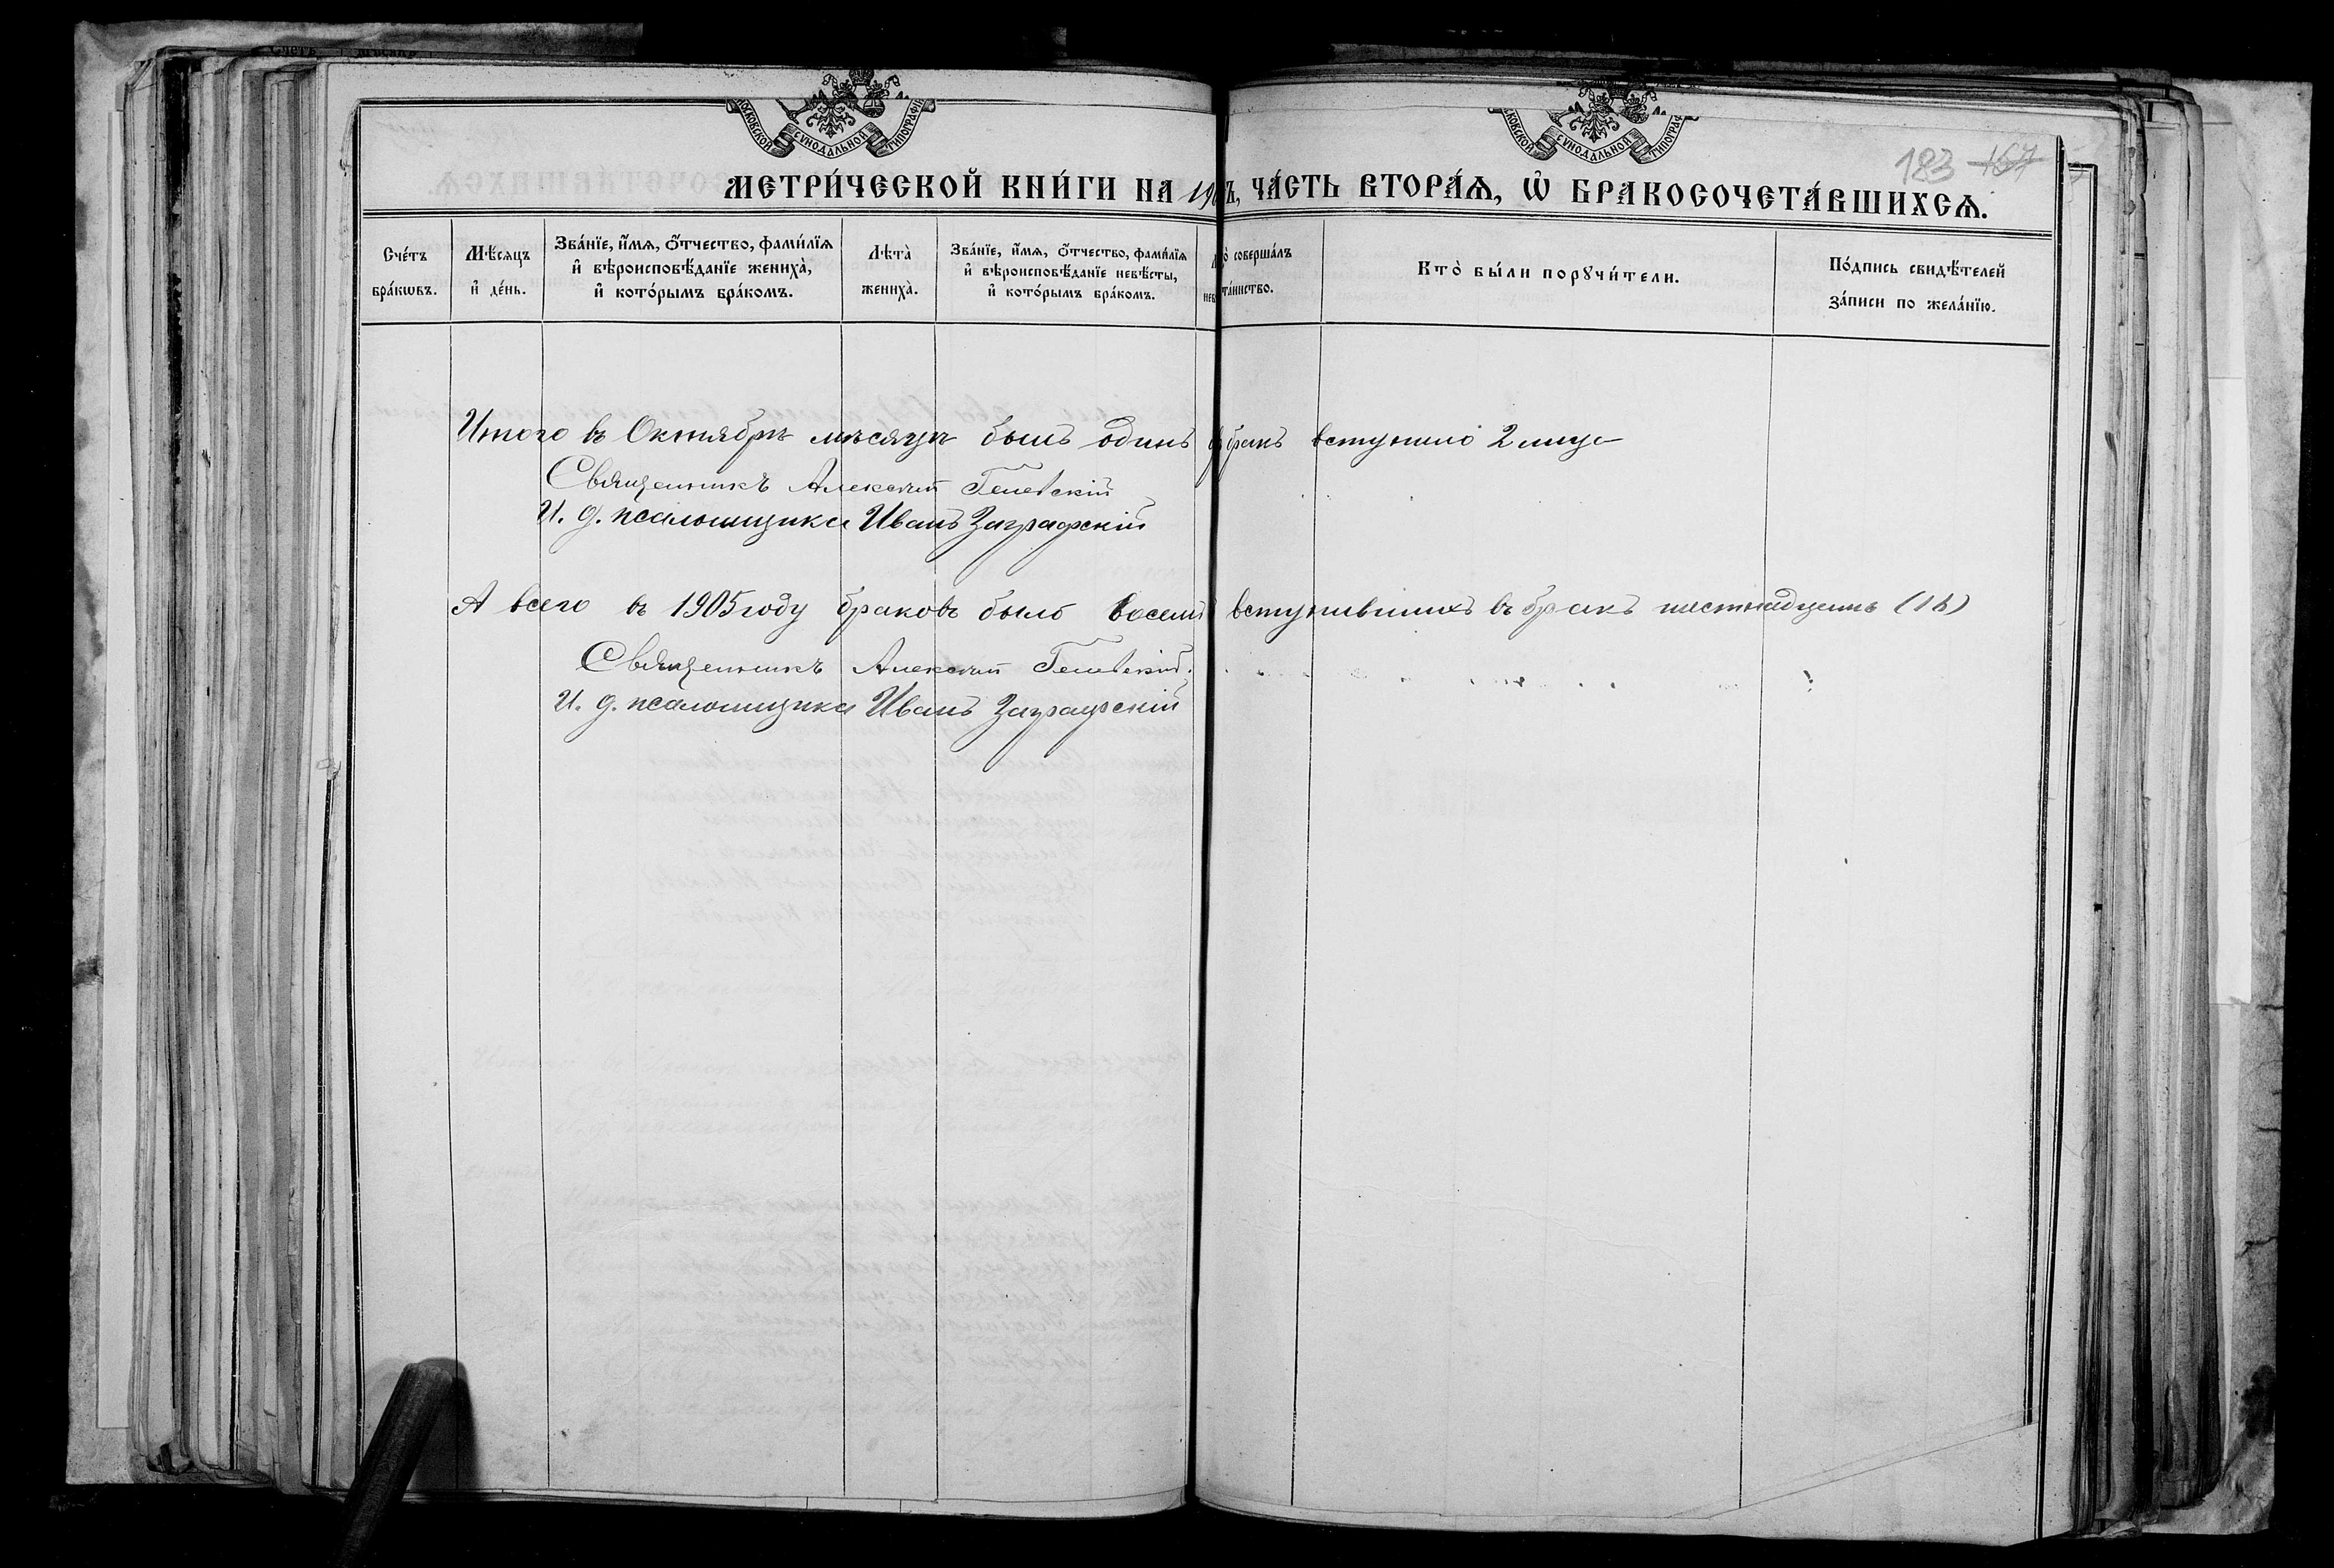 МОСКОВСКОЙ СѴНОДАЛЬНОЙ ТИПОГРАФІИ
183 167
МЕТРИ́ЧЕСКОЙ КНИ́ГИ НА 190 Ъ, ЧА́СТЬ ВТОРА́Ѧ, Ѽ БРАКОСОЧЕТА́ВШИХСѦ.
Сче́тъ бра́кѡвъ.
Мѣ́сѧцъ и҆ де́нь.
Зва́нїе, и҆́мѧ, ѻ҆́тчество, фами́лїѧ и҆ вѣроисповѣ́данїе жениха̀, и҆ кото́рымъ бра́комъ.
Лѣта̀ жениха̀.
Зва́нїе, и҆́мѧ, ѻ҆́тчество, фами́лїѧ и҆ вѣроисповѣ́данїе невѣ́сты, и҆ кото́рымъ бра́комъ.
о̀ соверша́лъ та́инство.
Кто̀ бы́ли порꙋчи́тели.
По́дпись свидѣ́телей за́писи по жела́нїю.
Итого въ Октябрѣ мѣсяцѣ былъ одинъ бракъ вступило 2 лица
Священникъ Алексій
И. д. псаломщика Иванъ Заграфскій
А всего въ 1905 году браковъ было восемь вступившихъ въ бракъ шестнадцать (16)
Священникъ Алексій
И. д. псаломщика Иванъ Заграфскій